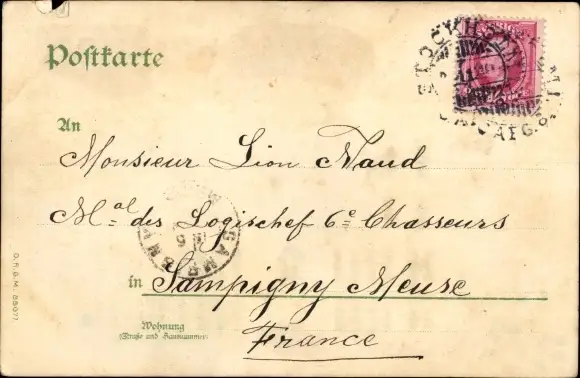 Postkarte
An
Monsieur Léon Naud
Mal des Logischef 6e Chasseurs
in Sampigny Meuse
Wohnung
(Straße und Hausnummer)
France
D.R.G.M. 88077